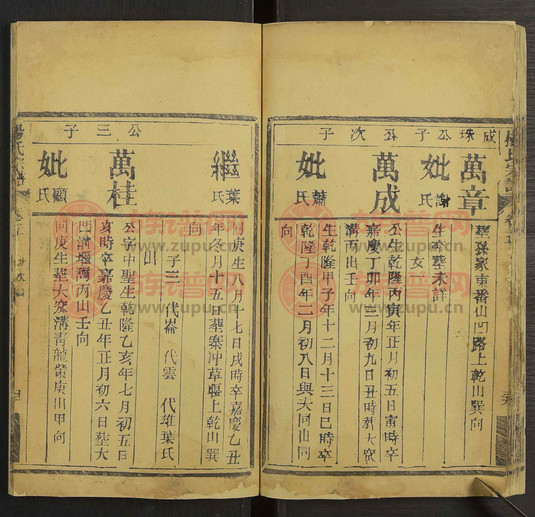 成珠公子
公次子
萬章
葬孫家東番山凹路上乾山巽向
妣謝氏
生命葬未詳
女
萬成
公生乾隆丙寅年正月初五日寅時卒
嘉慶丁卯年三月初九日丑時葬大窊
溝丙山壬向
妣蕭氏
生乾隆甲子年十二月十三日巳時卒
乾隆丁酉年二月初八日與夫同山同
向
繼葉氏
同庚生八月十七日戌時卒嘉慶乙丑
年冬月十五日葬寨沖草堰上乾山巽
向
子三 代崙 代雲 代雄葉氏
出
公三子
萬桂
公字中聖生乾隆乙亥年七月初五日
亥時卒嘉慶乙丑年正月初六日葬大
凹溝堰灣丙山壬向
妣顧氏
同庚生葬大窊溝青龍嘴庚山甲向
楊氏宗譜
族谱网
www.zupu.cn